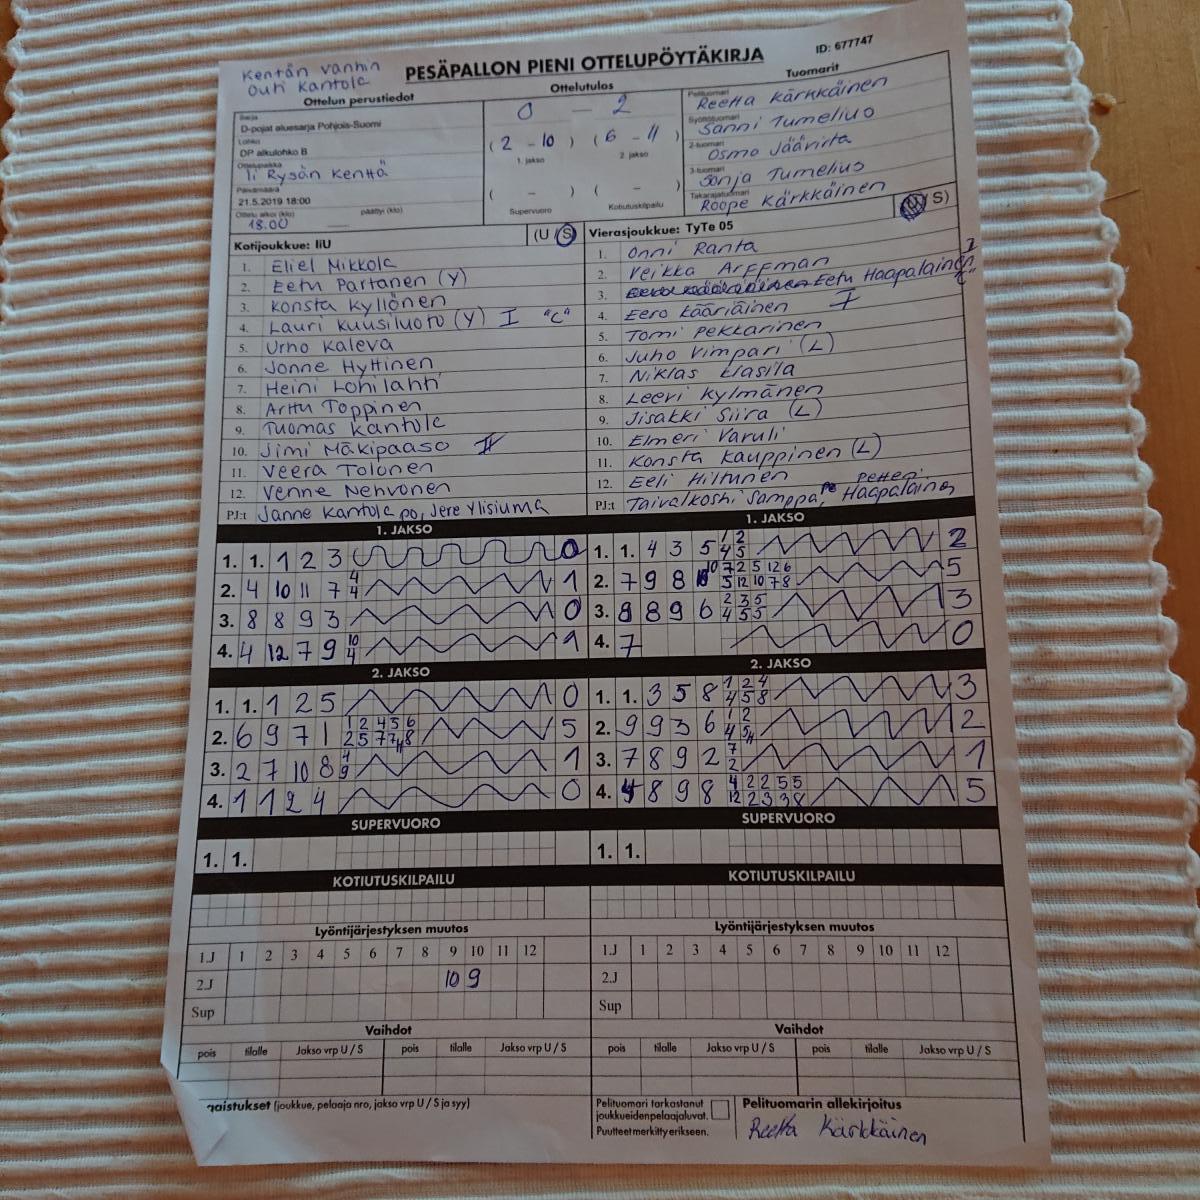 Kentän vanhin
Outi Kantola
PESÄPALLON PIENI OTTELUPÖYTÄKIRJA
ID: 677747
Ottelun perustiedot
Sarja
D-pojat aluesarja Pohjois-Suomi
Lohko
DP alkulohko B
Ottelupaikka
Ii Rysän Kenttä
Päivämäärä
21.5.2019 18:00
Ottelu alkoi (klo) päättyi (klo)
18.00
Ottelutulos
0 - 2
(2 - 10) (6 - 11)
1. jakso 2. jakso
( - ) ( - )
Supervuoro Kotiutuskilpailu
Tuomarit
Pelituomari
Reetta Kärkkäinen
Syöttötuomari
Sanni Tumelius
2-tuomari
Osmo Jäävirta
3-tuomari
Sonja Tumelius
Takarajatuomari
Roope Kärkkäinen
Kotijoukkue: IiU (U S)
1. Eliel Mikkola
2. Eetu Partanen (Y)
3. Konsta Kyllönen
4. Lauri Kuusiluoto (Y) I "C"
5. Urho Kaleva
6. Jonne Hyttinen
7. Heini Lohilahti
8. Arttu Toppinen
9. Tuomas Kantola
10. Jimi Mäkipaaso II
11. Veera Tolonen
12. Venne Nenvonen
PJ:t Janne Kantola po, Jere Ylisiuma
Vierasjoukkue: TyTe 05 (U/ S)
1. Onni Ranta
2. Veikka Arffman
3. Eetu Haapalainen "C"
4. Eero Kääriäinen I
5. Tomi Pekkarinen
6. Juho Vimpari (L)
7. Niklas Klasila
8. Leevi Kylmänen
9. Iisakki Siira (L)
10. Elmeri Varuli
11. Konsta Kauppinen (L)
12. Eeli Hiltunen
PJ:t Taivalkoski Samppa, Petteri Haapalainen
1. JAKSO
1. 1. 1 2 3 0
2. 4 10 11 7 4 4 1
3. 8 8 9 3 0
4. 4 12 7 9 10 4 1
2. JAKSO
1. 1. 1 2 5 0
2. 6 9 7 1 1 2 4 5 6 2 5 7 7 8 11 5
3. 2 7 10 8 4 9 1
4. 1 1 2 4 0
SUPERVUORO
1. 1.
KOTIUTUSKILPAILU
Lyöntijärjestyksen muutos
1.J 1 2 3 4 5 6 7 8 9 10 11 12
2.J 10 9
Sup
Vaihdot
pois tilalle Jakso vrp U / S pois tilalle Jakso vrp U / S
1. JAKSO
1. 1. 4 3 5 1 2 4 5 2
2. 7 9 8 10 7 2 5 12 6 5 12 10 7 8 5
3. 8 8 9 6 2 3 5 4 5 5 3
4. 7 0
2. JAKSO
1. 1. 3 5 8 1 2 4 4 5 8 3
2. 9 9 3 6 1 2 4 5 11 2
3. 7 8 9 2 7 2 1
4. 4 8 9 8 4 2 2 5 5 12 2 3 3 8 5
SUPERVUORO
1. 1.
KOTIUTUSKILPAILU
Lyöntijärjestyksen muutos
1.J 1 2 3 4 5 6 7 8 9 10 11 12
2.J
Sup
Vaihdot
pois tilalle Jakso vrp U / S pois tilalle Jakso vrp U / S
(joukkue, pelaaja nro, jakso vrp U / S ja syy)
Pelituomari tarkastanut
joukkueiden pelaajaluvat.
Puutteet merkitty erikseen.
Pelituomarin allekirjoitus
Reetta Kärkkäinen